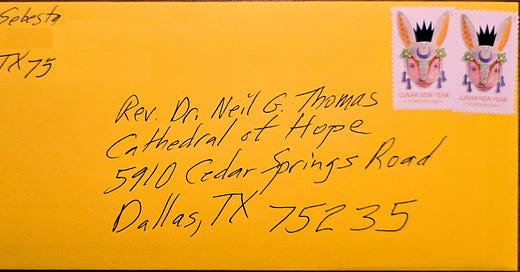 Sebesta
TX 75
LUNAR NEW YEAR
FOREVER USA
LUNAR NEW YEAR
FOREVER USA
Rev. Dr. Neil G. Thomas
Cathedral of Hope
5910 Cedar Springs Road
Dallas, TX 75235